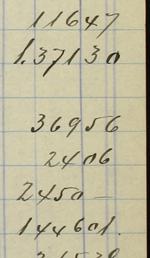 11647
1.37130
36956
2406
2450 —
144601.